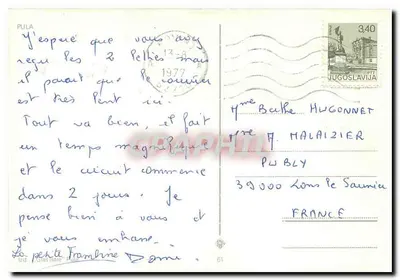 PULA
J'espère que vous avez
reçu les 2 lettres mais
il parait que le courrier
est très lent ici.
Tout va bien, il fait
un temps magnifique
et le circuit commence
dans 2 jours. Je
pense bien à vous et
je vous embrasse.
La petite Domi.
1977
3,40
JUGOSLAVIJA
Mme Berthe HUGONNET
Mme A. MALAIZIER
PUBLY
39000 Lons le Saunier
FRANCE